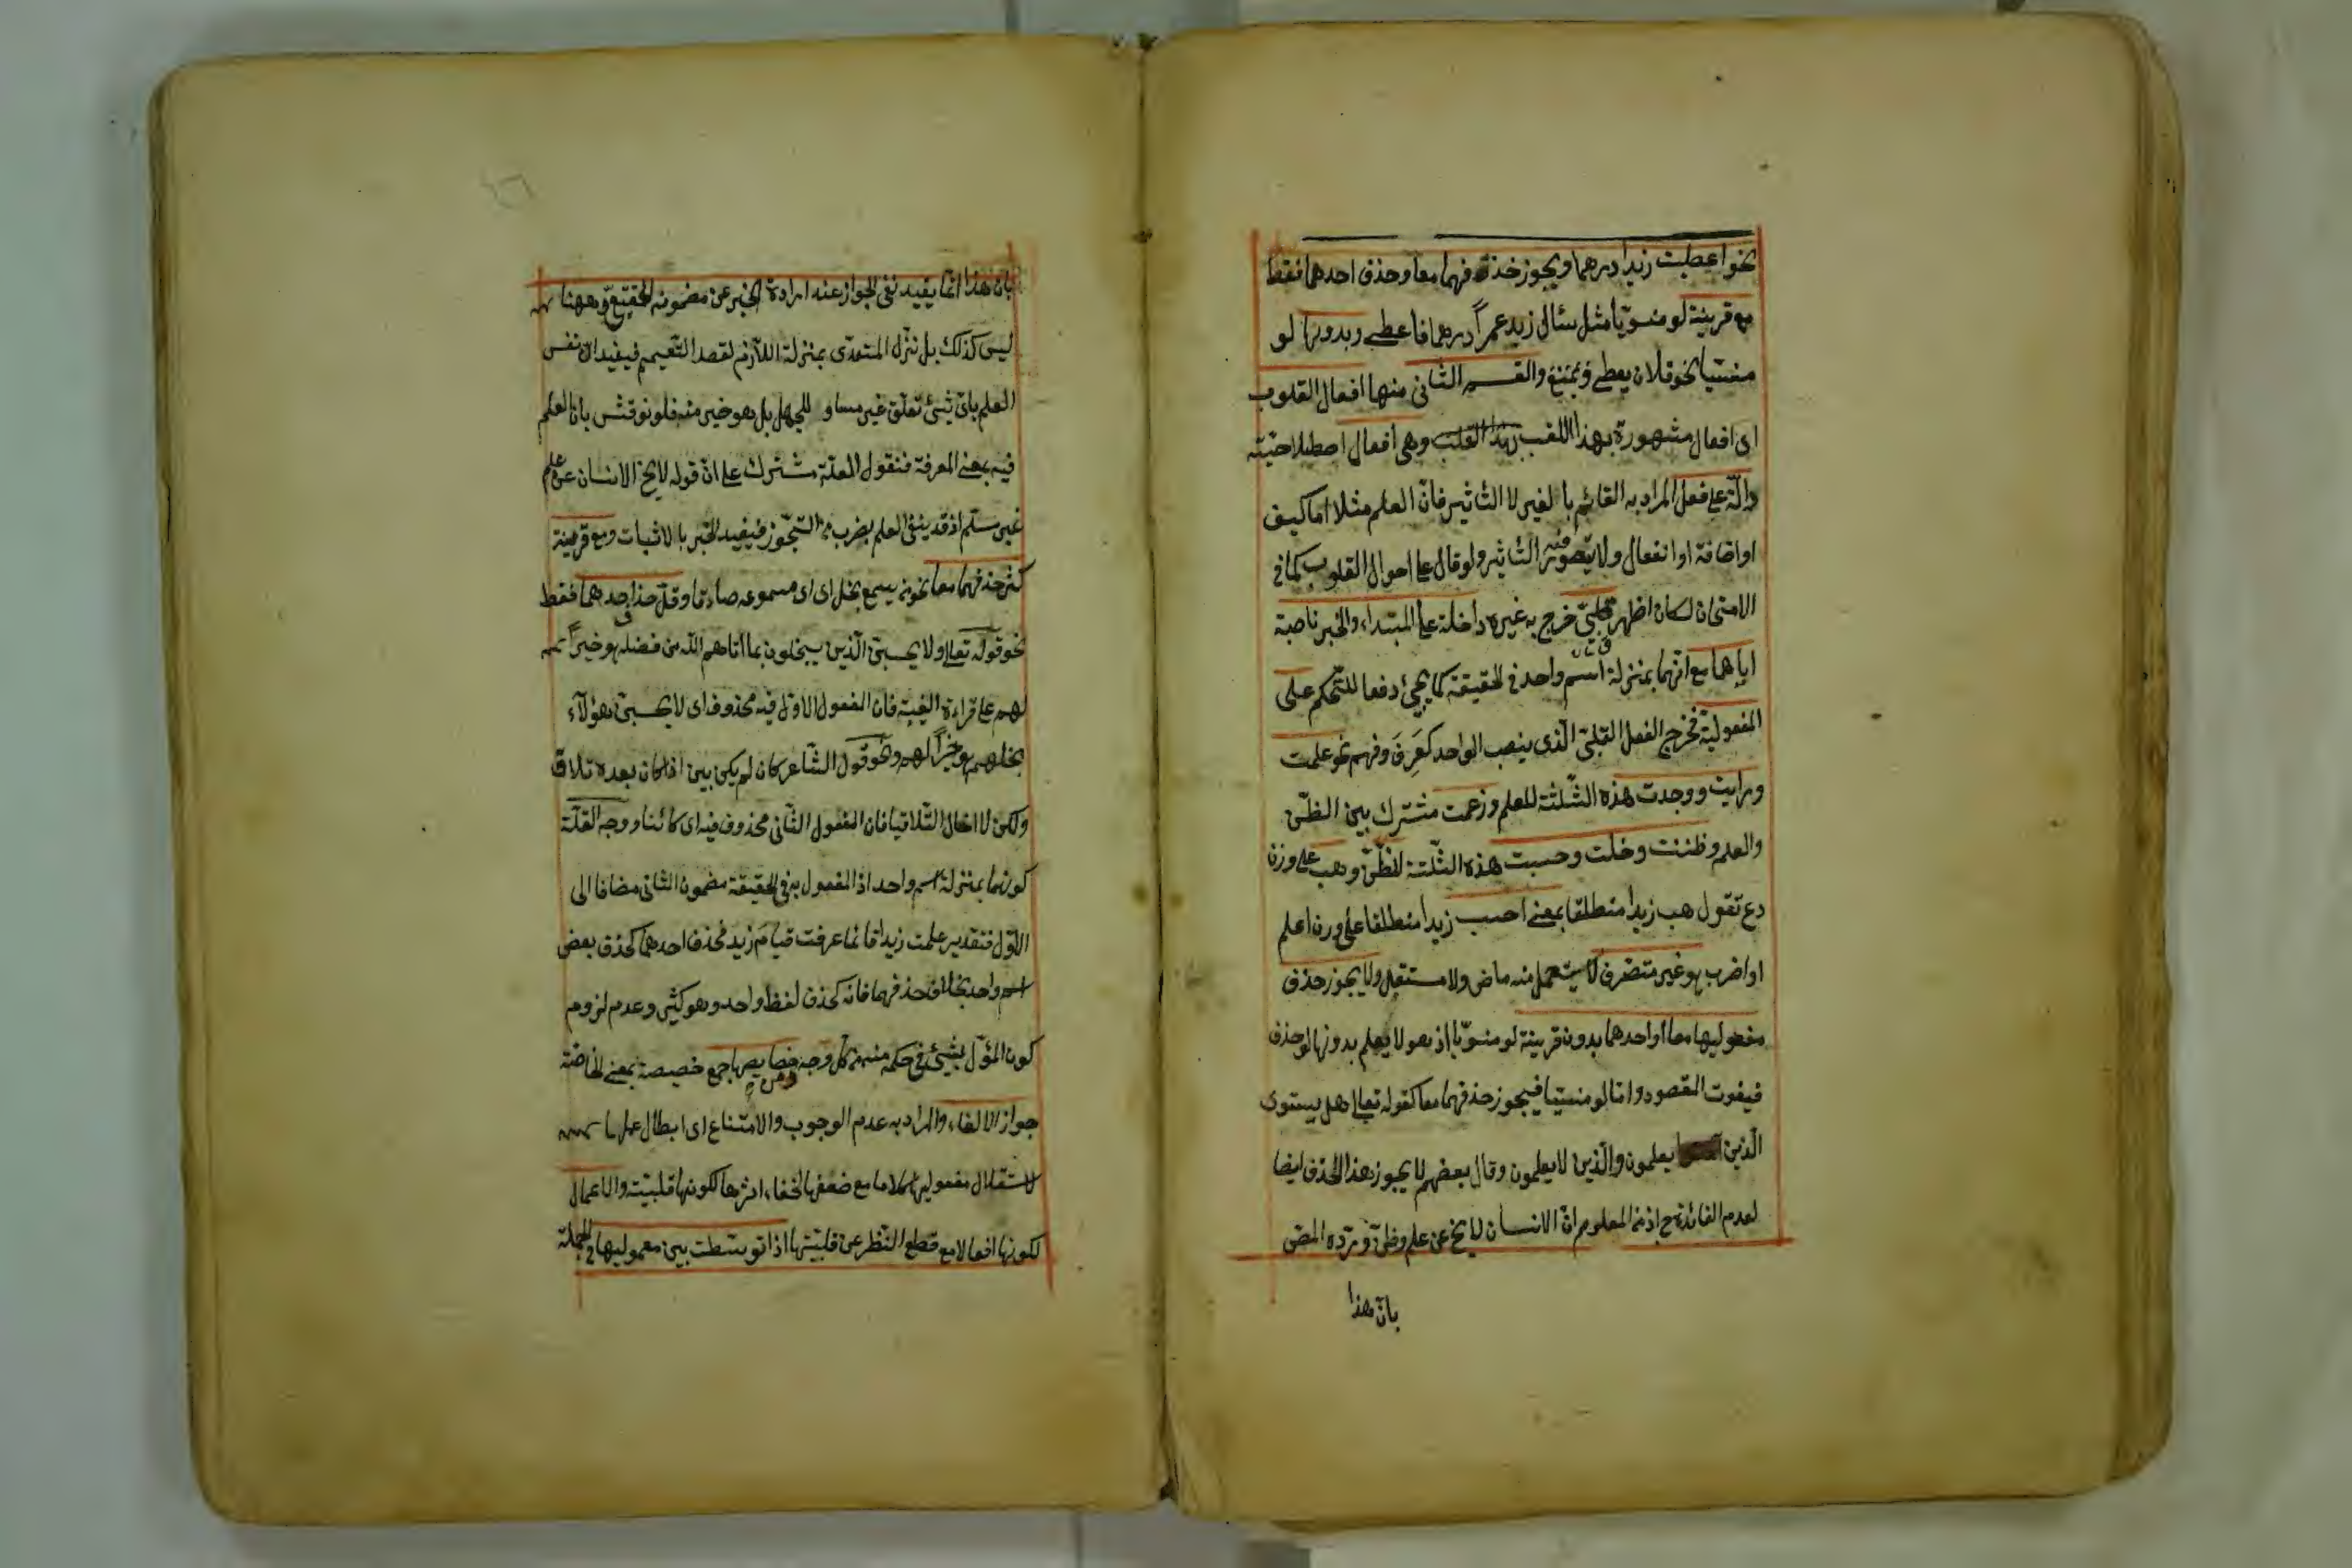 نحو اعطيت زيدا درهما ويجوز حذفهما معا وحذف احدهما فقط
مع قرينة لو منويّا مثل سئال زيد عمراً درهما فاعطى وبدونها لو
منسيّا نحو فلان يعطى ويمنع والقسم الثانى منها افعال القلوب
اى افعال مشهورة بهذا اللقب وهى افعال اصطلاحيّة
دالّة على فعل المراد به القائم بالغير لا التاثير فانّ العلم مثلا اما كيف
او اضافة او انفعال ولا يتصوّر منه التاثير ولو قال على احوال القلوب كما فى
الامتحان لكان اظهر قلبىّ خرج به غيره داخلة على المبتداء والخبر ناصبة
اياهما مع انّهما بمنزلة اسم واحد فى الحقيقة كما يجئ دفعا للتّحكم على
المفعولية فخرج الفعل القلبىّ الّذى ينصب الواحد كعَرِفَ وفهم نحو علمت
ورايت ووجدت هذه الثّلثة للعلم وزعمت مشترك بين الظنّ
والعلم وظننت وخلت وحسبت هذه الثّلثة للظنّ وهب على وزن
دع تقول هب زيدا منطلقا بمعنى احسب زيدا منطلقا على وزن اعلم
او اضرب هو غير متصّرف لا يستعمل منه ماض ولا مستقبل ولا يجوز حذف
مفعوليها معا او احدهما بدون قرينة لو منويّا اذ هو لا يعلم بدونها لو حذف
فيفوت المقصود وامّا لو منسيّا فيجوز حذفهما معا كقوله تعالى هل يستوى
الّذين يعلمون والّذين لا يعلمون وقال بعضهم لا يجوز هذا الحذف ايضا
لعدم الفائدة ح اذ من المعلوم انّ الانسان لا يخ عن علم وظنّ وتردّه المص
بانّ هذا
بانّ هذا انّما يفيد نفى الجواز عند ارادة الخبر عن مضمونه الحقيقىّ وههنا
ليس كذلك بل نزّل المتعدّى بمنزلة اللّازم لقصد التّعميم فيفيد انّ نفس
العلم باىّ شئ تعلّق غير مساو للجهل بل هو خير منه فلو نوقش بانّ العلم
فيه بمعنى المعرفة فنقول العلّة مشترك على انّ قوله لا يخ الانسان عن علم
غير مسلّم اذ قد ينفى العلم بضرب من التجوّز فيفيد الخبر بالاثبات ومع قرينة
كثر حذفهما معا نحو من يسمع يخل اى اى مسموعه صادقا وقلّ حذف احدهما فقط
نحو قوله تعالى ولا يحسبنّ الّذين يبخلون بما اتاهم الله من فضله هو خيراً
لهم على قراءة الغيبة فان المفعول الاوّل فيه محذوف اى لا يحسبنّ هؤلآء
بخلهم هو خيراً لهم ونحو قول الشّاعر كان لم يكن بين اذا كان بعده تلاق
ولكن لا اخال التّلاقيا فان المفعول الثّانى محذوف فيه اى كائنا ووجه القلّة
كونهما بمنزلة اسم واحد اذ المفعول به فى الحقيقة مضمون الثّانى مضافا الى
الاوّل فتقدير علمت زيدا قائما عرفت قيامَ زيد فحذف احدهما كحذف بعض
اسم واحد بخلاف حذفهما فانّه كحذف لفظ واحد وهو كثير وعدم لزوم
كون المؤوّل بشئ فى حكمه من كلّ وجه ومن خصايصها جمع خصيصة بمعنى الخاصّة
جواز الالغاء والمراد به عدم الوجوب والامتناع اى ابطال عملها
لاستقلال مفعوليها كلاما مع ضعفها لخفاء اثرها لكونها قلبيّة والاعمال
لكونها افعالا مع قطع النّظر عن قلبيّتها اذا توسّطت بين معموليها فى الجملة